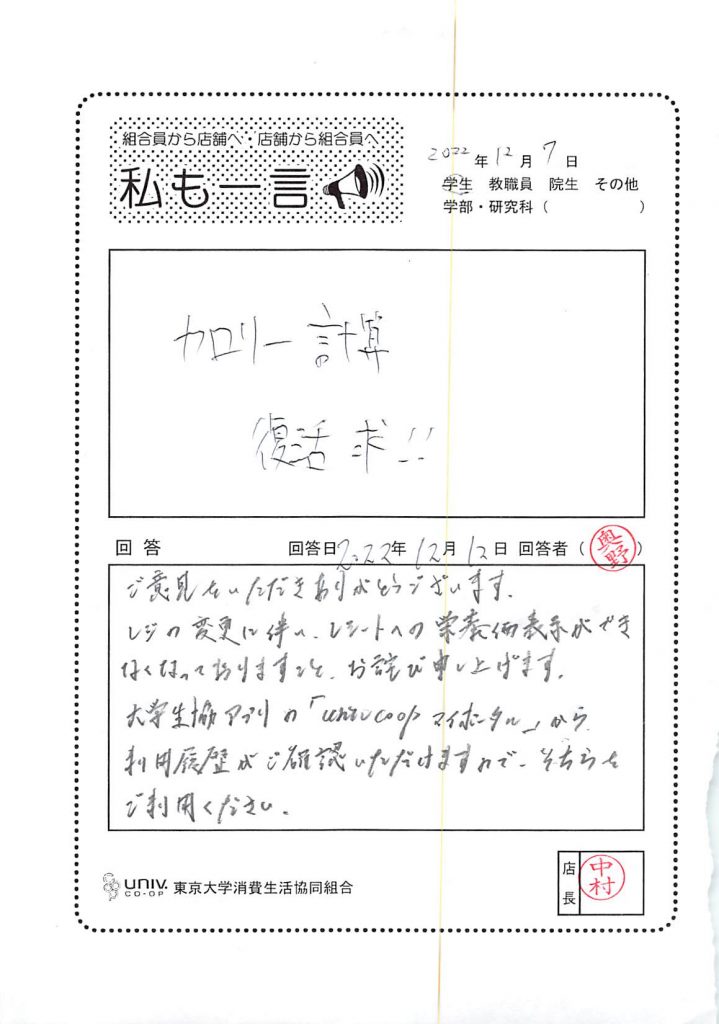 組合員から店舗へ・店舗から組合員へ
私も一言
2022年12月7日
学生 教職員 院生 その他
学部・研究科( )
カロリー計算
復活求!!
回答 回答日2022年12月12日 回答者(奥野)
ご意見をいただきありがとうございます。
レジの変更に伴い、レシートへの栄養価表示ができ
なくなっておりますこと、お詫び申し上げます。
大学生協アプリの「univcoopマイポータル」から
利用履歴がご確認いただけますので、そちらを
ご利用ください。
UNIV. CO-OP 東京大学消費生活協同組合
店長 中村